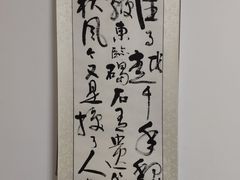 往事越千年魏
鞭東臨碣石有遺
秋風今又是換了人